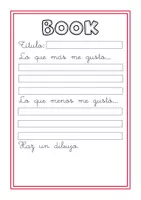 BOOK
Título:
Lo que más me gustó...
Lo que menos me gustó...
Haz un dibujo.